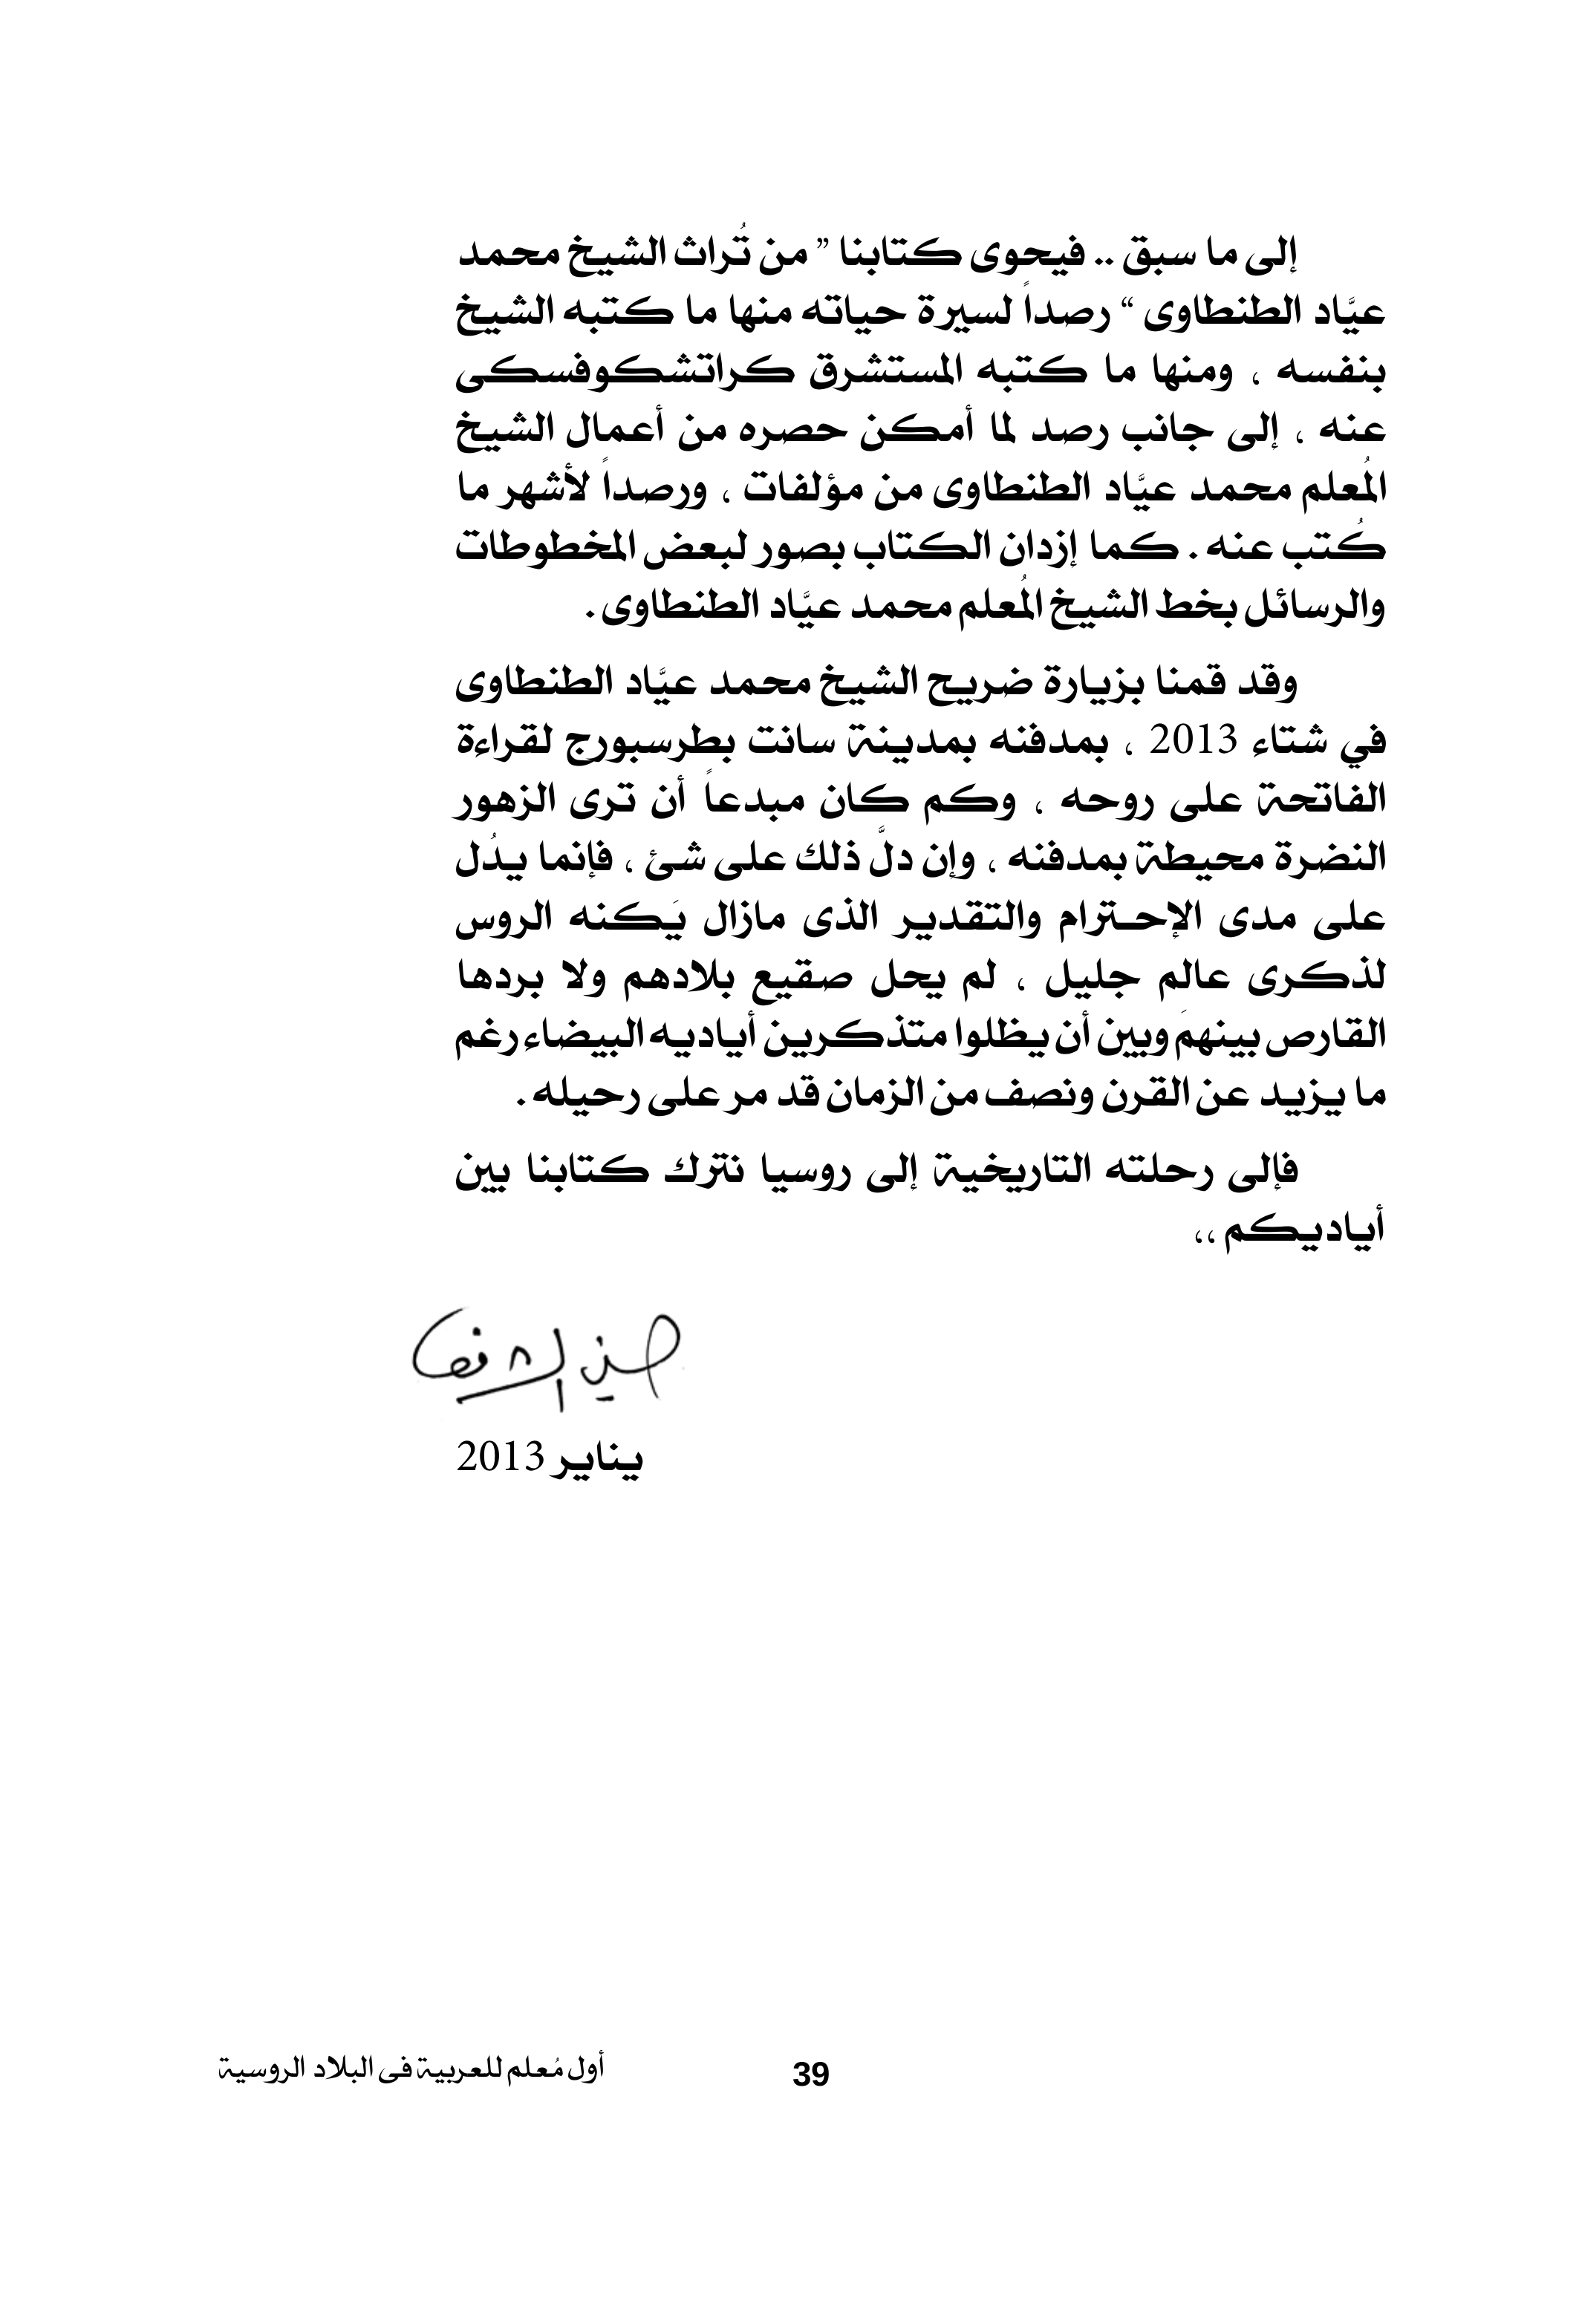 إلى ما سبق .. فيحوى كتابنا ” من تُراث الشيخ محمد
عيَّاد الطنطاوى “ رصداً لسيرة حياته منها ما كتبه الشيخ
بنفسه ، ومنها ما كتبه المستشرق كراتشكوفسكى
عنه ، إلى جانب رصد لما أمكن حصره من أعمال الشيخ
المُعلم محمد عيَّاد الطنطاوى من مؤلفات ، ورصداً لأشهر ما
كُتب عنه . كما إزدان الكتاب بصور لبعض المخطوطات
والرسائل بخط الشيخ المُعلم محمد عيَّاد الطنطاوى .
وقد قمنا بزيارة ضريح الشيخ محمد عيَّاد الطنطاوى
في شتاء 2013 ، بمدفنه بمدينة سانت بطرسبورج لقراءة
الفاتحة على روحه ، وكم كان مبدعاً أن ترى الزهور
النضرة محيطة بمدفنه ، وإن دلَّ ذلك على شئ ، فإنما يدُل
على مدى الإحـترام والتقدير الذى مازال يَكنه الروس
لذكرى عالم جليل ، لم يحل صقيع بلادهم ولا بردها
القارص بينهمَ وبين أن يظلوا متذكرين أياديه البيضاء رغم
ما يزيد عن القرن ونصف من الزمان قد مر على رحيله .
فإلى رحلته التاريخية إلى روسيا نترك كتابنا بين
أياديكم ،،
يناير 2013
39
أول مُعلم للعربية فى البلاد الروسية